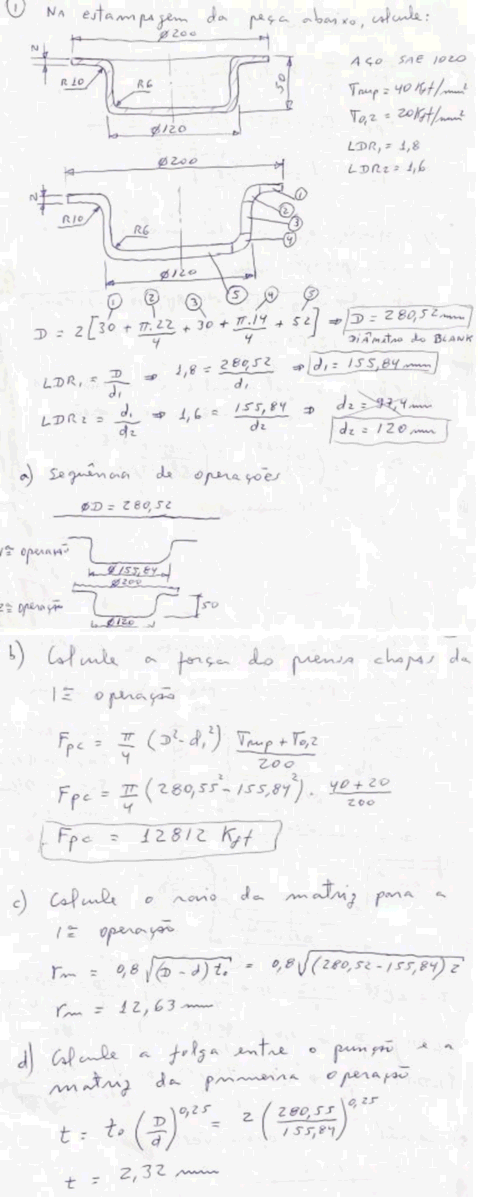 ① Na estampagem da peça abaixo, calcule:
Ø200
2
R10
R6
50
Ø120
AÇO SAE 1020
Trup = 40 Kgf/mm²
T0,2 = 20 Kgf/mm²
LDR1 = 1,8
LDR2 = 1,6
Ø200
2
R10
R6
Ø120
① ② ③ ④ ⑤
① ② ③ ④ ⑤
D = 2 [30 + π.22/4 + 30 + π.14/4 + 52] ⇒ D = 280,52 mm
DIÂMETRO do BLANK
LDR1 = D/d1 ⇒ 1,8 = 280,52/d1 ⇒ d1 = 155,84 mm
LDR2 = d1/d2 ⇒ 1,6 = 155,84/d2 ⇒ d2 = 97,4 mm
d2 = 120 mm
a) Sequência de operações
ØD = 280,52
1ª operação
Ø155,84
Ø200
2ª operação
50
Ø120
b) Calcule a força do prensa chapas da
1ª operação
Fpc = π/4 (D² - d1²) Trup + T0,2/200
Fpc = π/4 (280,55² - 155,84²) . 40 + 20/200
Fpc = 12812 Kgf
c) Calcule o raio da matriz para a
1ª operação
rm = 0,8 √(D - d) to = 0,8 √(280,52 - 155,84) 2
rm = 12,63 mm
d) Calcule a folga entre o punção e a
matriz da primeira operação
t = to (D/d)^0,25 = 2 (280,55/155,84)^0,25
t = 2,32 mm